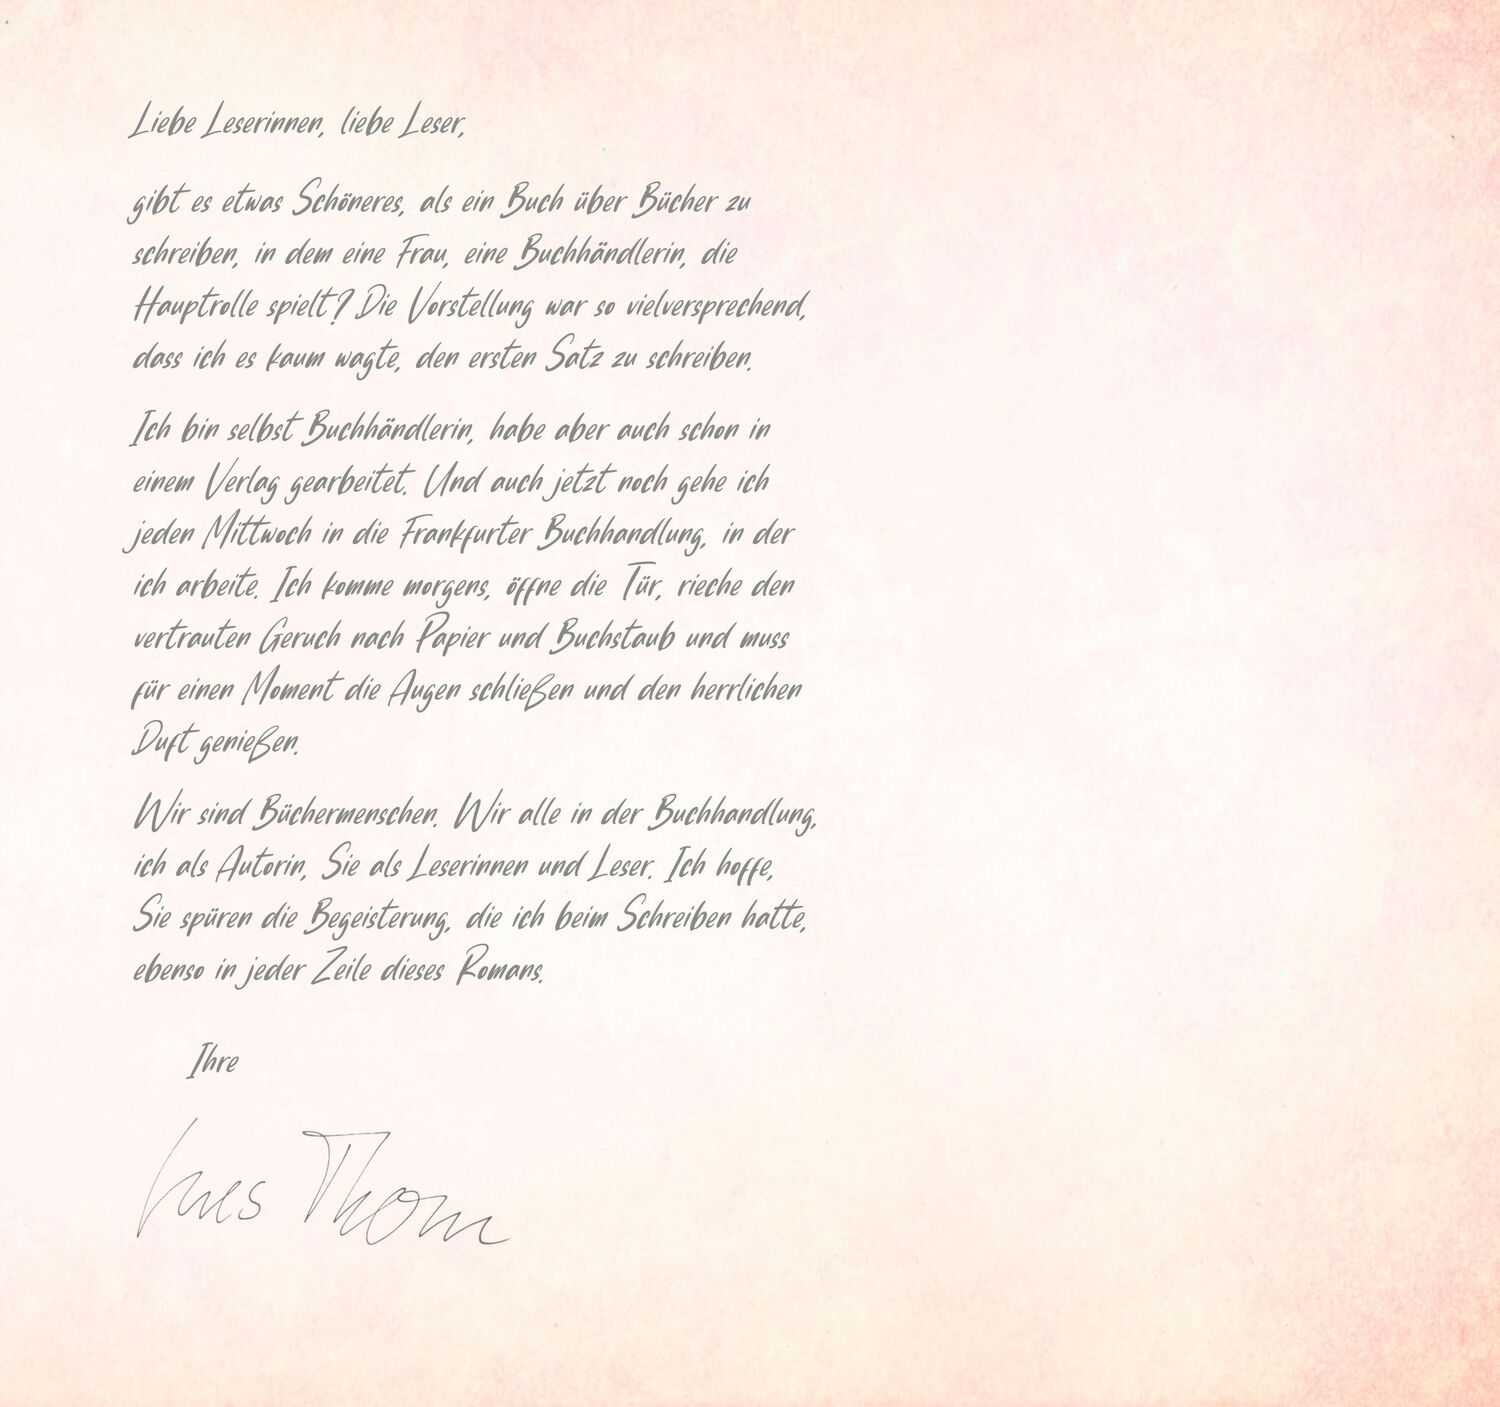 Liebe Leserinnen, liebe Leser,
gibt es etwas Schöneres, als ein Buch über Bücher zu
schreiben, in dem eine Frau, eine Buchhändlerin, die
Hauptrolle spielt? Die Vorstellung war so vielversprechend,
dass ich es kaum wagte, den ersten Satz zu schreiben.
Ich bin selbst Buchhändlerin, habe aber auch schon in
einem Verlag gearbeitet. Und auch jetzt noch gehe ich
jeden Mittwoch in die Frankfurter Buchhandlung, in der
ich arbeite. Ich komme morgens, öffne die Tür, rieche den
vertrauten Geruch nach Papier und Buchstaub und muss
für einen Moment die Augen schließen und den herrlichen
Duft genießen.
Wir sind Büchermenschen. Wir alle in der Buchhandlung,
ich als Autorin, Sie als Leserinnen und Leser. Ich hoffe,
Sie spüren die Begeisterung, die ich beim Schreiben hatte,
ebenso in jeder Zeile dieses Romans.
Ihre
Ines Thorn